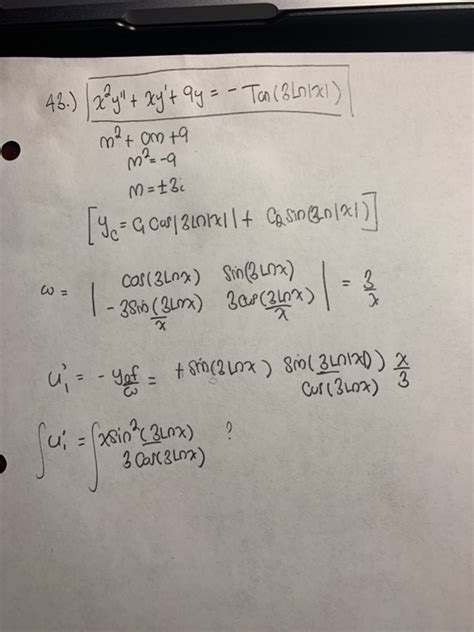 43.) x²y" + xy' + 9y = - Tan(3Ln|x|)
m² + 0m + 9
m² = -9
m = ±3i
[y_c = C₁ Cos|3Ln|x|| + C₂ sin(3Ln|x|)]
ω = | cos(3Lnx) Sin(3Lnx) | = 3/x
| -3Sin(3Lnx)/x 3Cos(3Lnx)/x |
u₁' = - y₂f/ω = + Sin(3Lnx) Sin(3Ln|x|)/Cos(3Lnx) x/3
∫u₁' = ∫ xsin²(3Lnx)/3Cos(3Lnx) ?